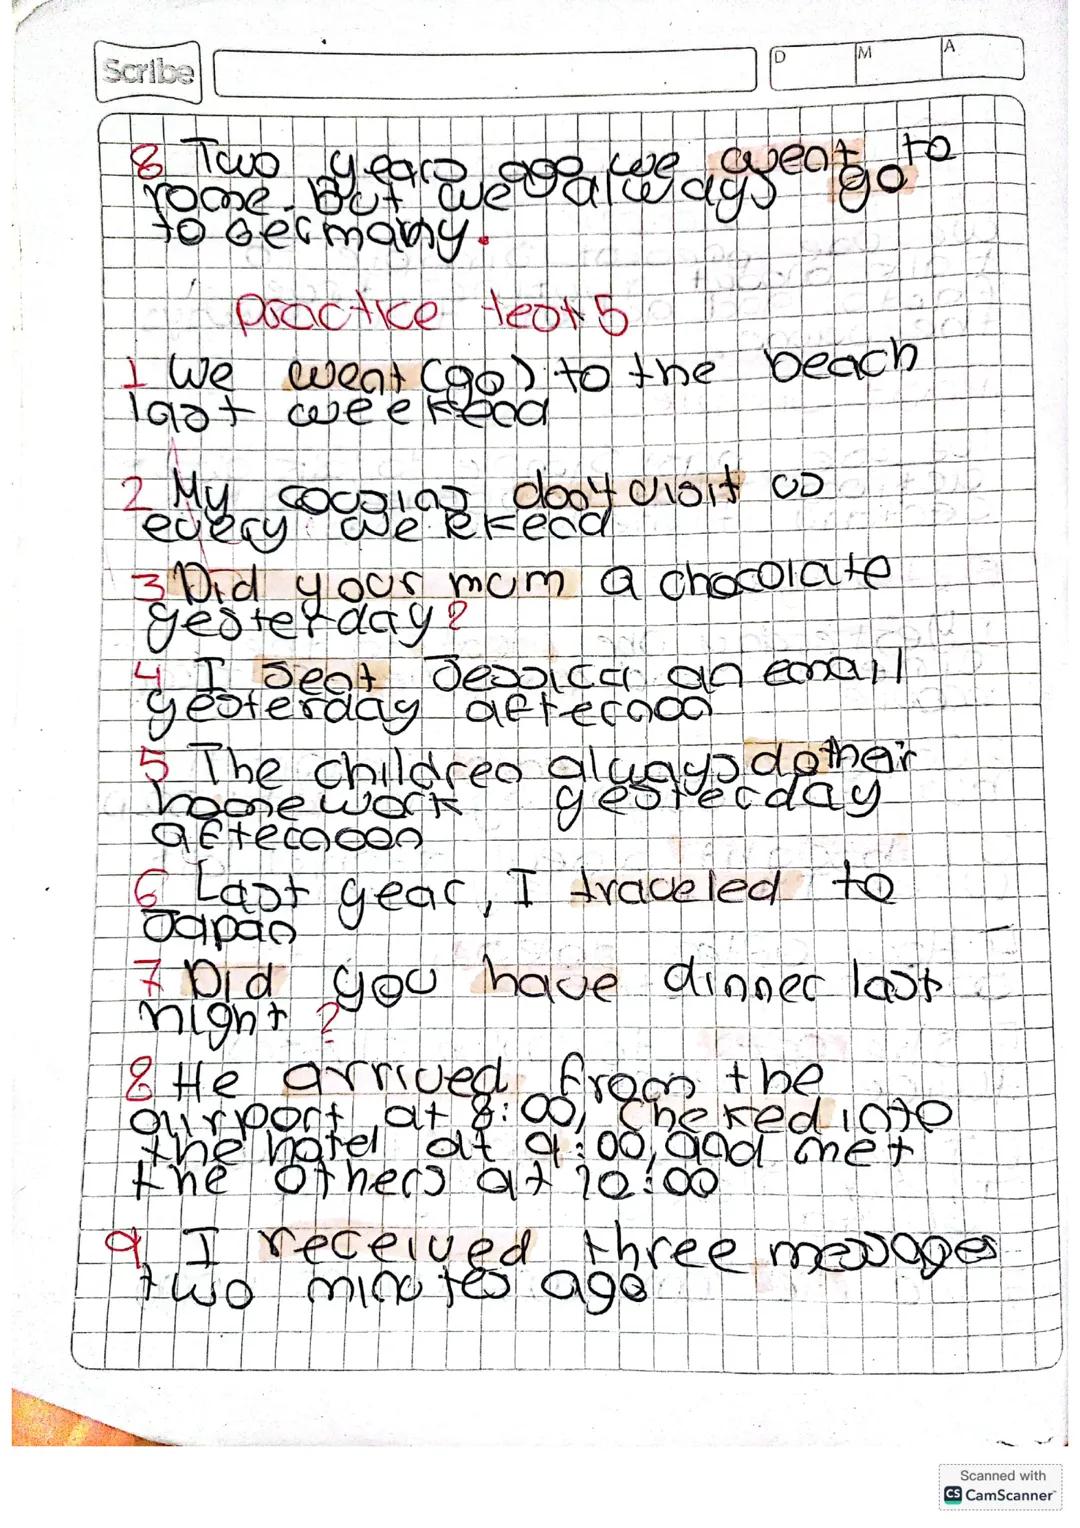 Scribe
D M A
8 Two years ago we went to
rome. But we always go
to Germany.
practice test 5
1 We went (go) to the beach
last weekend
2 My cousins don't visit us
every weekend
3 Did your mum a chocolate
yesterday?
4 I sent Jessica an email
yesterday afternoon
5 The children always do their
homework yesterday
afternoon
6 Last year, I traveled to
Japan
7 Did you have dinner last
night?
8 He arrived from the
airport at 8:00, cheked into
the hotel at 9:00, and met
the others at 10:00
9 I received three messages
two minutes ago
Scanned with
CS CamScanner